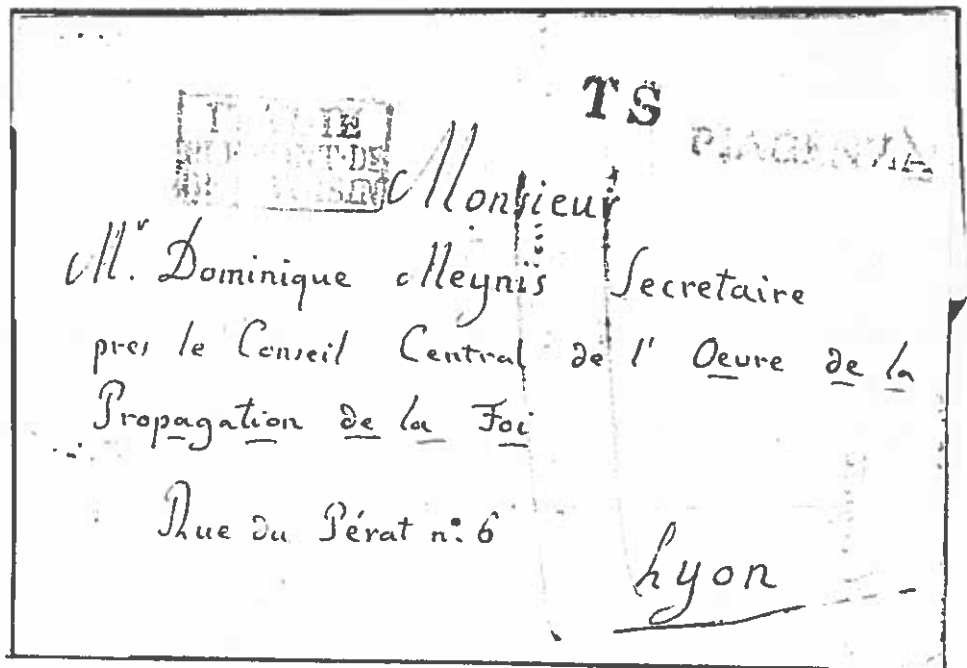 TS
PIACENZA
Monsieur
Mr. Dominique Meynis Secretaire
pres le Conseil Central de l' Oeuvre de la
Propagation de la Foi
Rue du Pérat n.º 6
Lyon